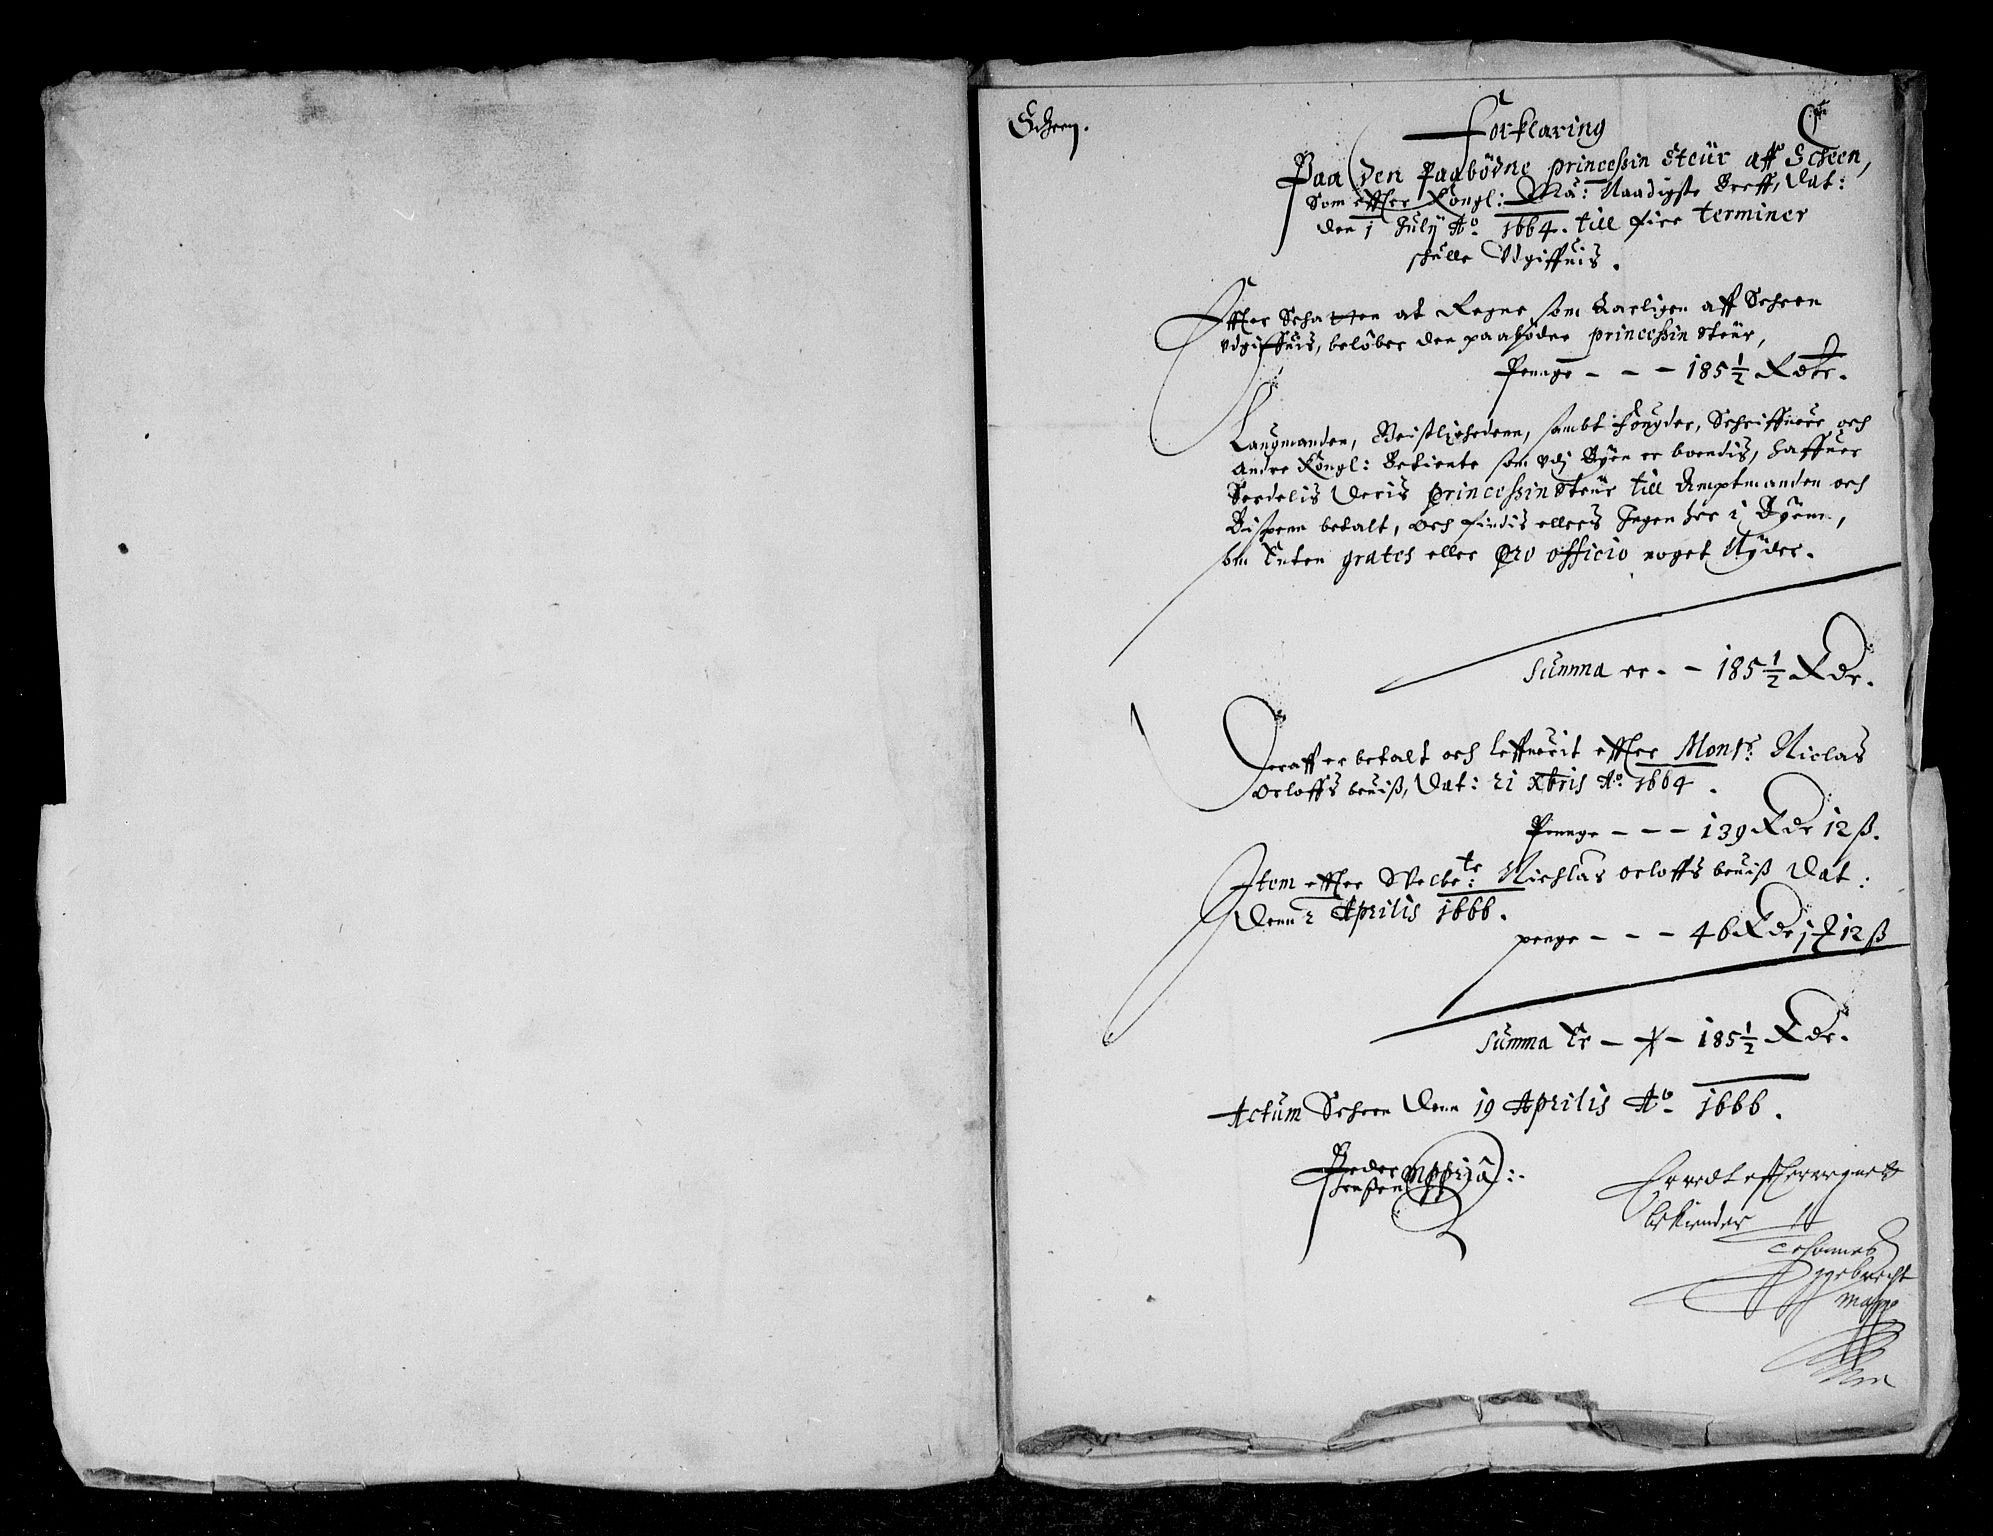 Scheen.
Forklaring
Paa den Paabödne princessin Steür aff Scheen,
Som effter Kongl: Ma: Naadigste Breff, Dat:
den 1 July Ao. 1664. till fire terminer
schulle Udgiffuis.
Effter Schatten at Regne som Aarligen aff Scheen
udgiffuis, beløber den paabödne princessin Steür,
Penge - - - 185 1/2 Rdr.
Laugmanden, Geistlighedenn, sambt fougder, Schriffuere och
Andre Kongl: Betiente som udj Byen er boendis, haffuer
Serdelis deris princessin Steür till Amptmanden och
Bispenn betalt, och findis ellers Ingen her i Byenn,
som Enten gratis eller Pro officio noget Nyder.
Summa er - - 185 1/2 Rdr.
Deraff er betalt och leffuerit effter Monsr. Niclas
Orloffs beuiß, Dat: 21 xbris Ao. 1664.
Penge - - - 139 Rdr 12 ß.
Item effter Welbte: Nichlas Orloffs beuiß Dat:
Denn 2 Aprilis 1666.
penge - - - 46 Rdr 1 12 ß
Summa Er - - 185 1/2 Rdr.
Actum Scheen Denn 19 Aprilis Ao. 1666.
Peder
Jenßen mppria
Er redt effter regnett
bekiender
Johannes
mppe